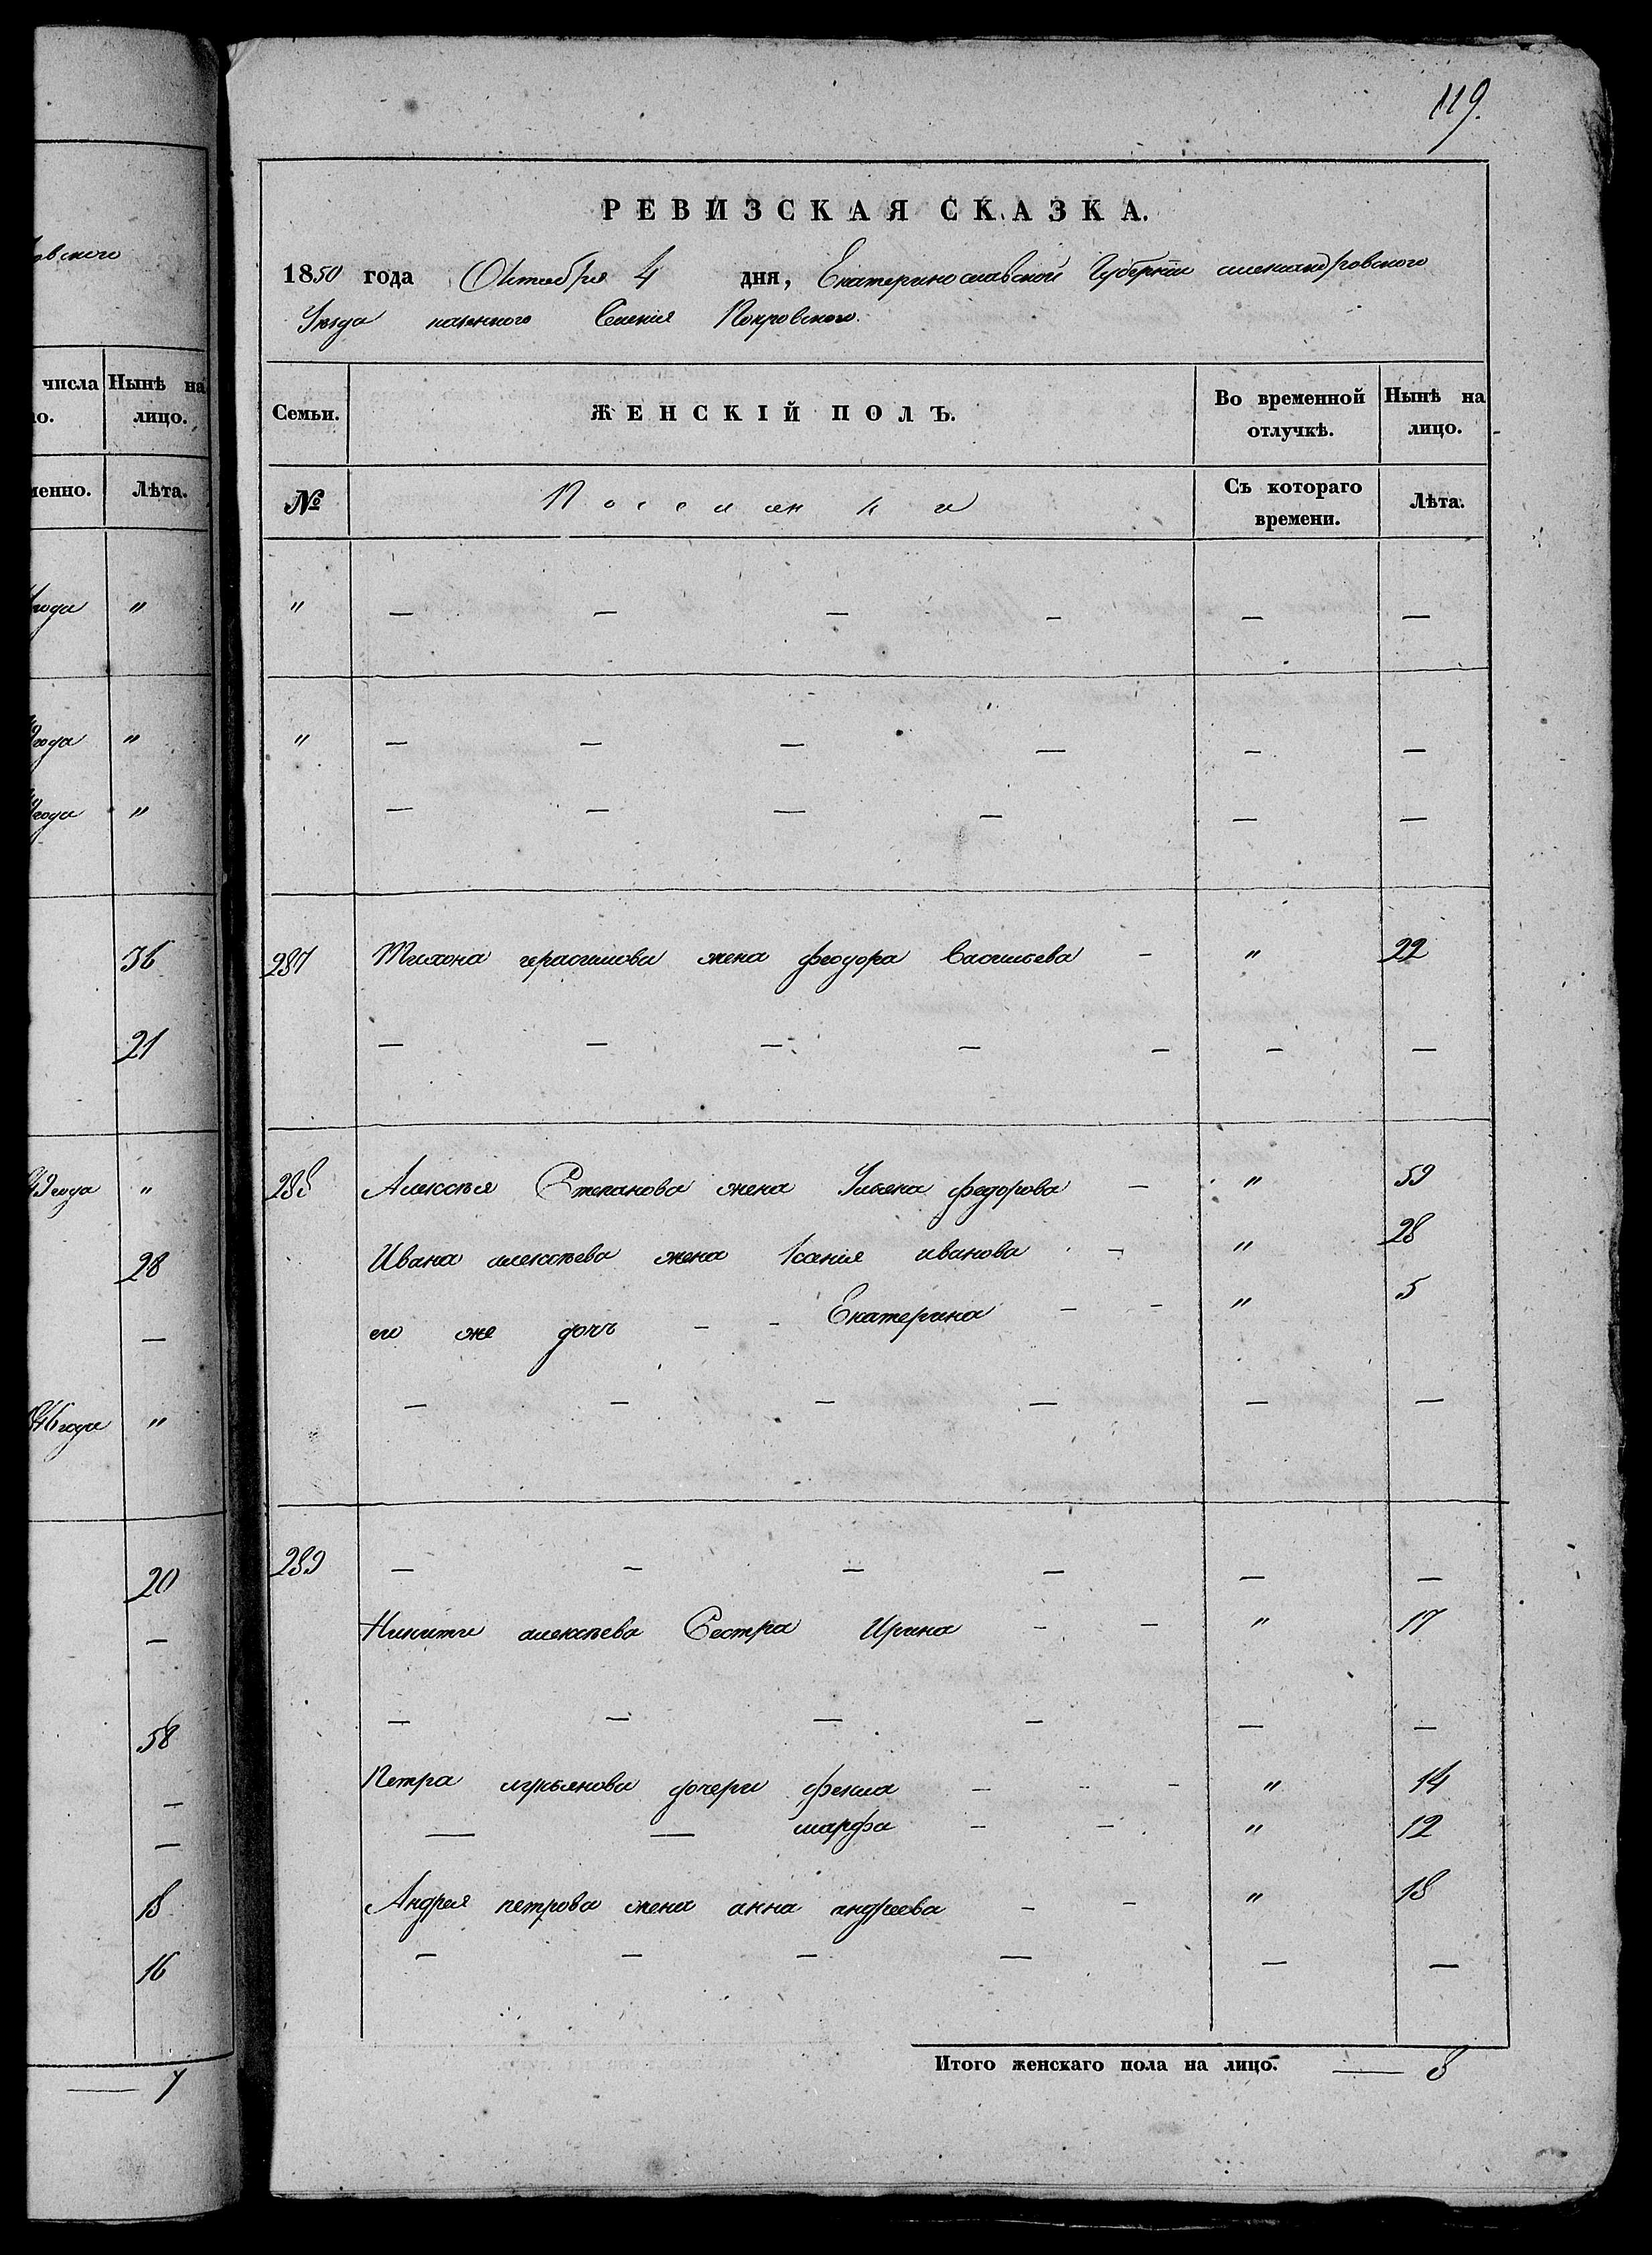 119.
РЕВИЗСКАЯ СКАЗКА.
1850 года Октября 4 дня, Екатеринославской Губерніи александровского
Уезда казенного Селенія Покровского.
Семьи. ЖЕНСКІЙ ПОЛЪ. Во временной отлучкѣ. Нынѣ на лицо.
№ Поселянки Съ котораго времени. Лѣта.
" — — — — — —
" — — — — — —
— — — — — —
287 Тихона герасимова жена феодора Васильева - " 22
— — — — — — —
288 Алексѣя Степанова жена Ульяна федорова — " 59
Ивана алексѣева жена Ксенія иванова - " 28
его же дочь - - Екатерина - - " 5
— — — — — —
289 — — — — — —
Никиты алексѣева Сестра Ирина - - " 17
— — — — — —
Петра лукьянова дочери фекла - - - " 14
— — марфа - - " 12
Андрея петрова жена анна андреева - - " 18
— — — — — —
Итого женскаго пола на лицо. — 8
овского
числа Нынѣ на
ло. лицо.
менно. Лѣта.
года "
года "
года "
36
21
43 года "
28
—
846 года "
20
—
58
—
—
18
16
— 7